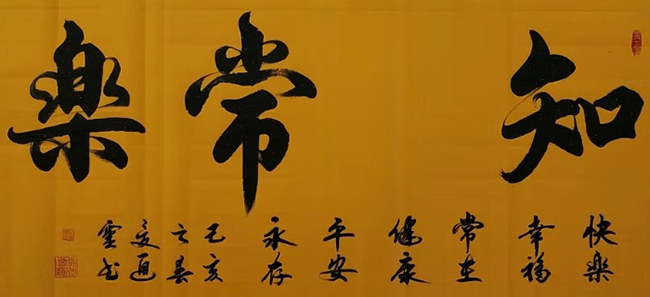 知常樂
快樂
幸福
常在
健康
平安
永存
己亥
之春
通
雲书